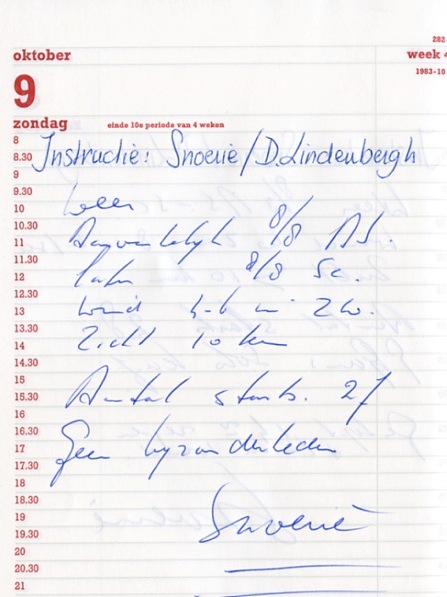 282
oktober
week 4
1983-10
9
zondag
einde 10e periode van 4 weken
8
8.30
Instructie: Snoeïe / D. Lindenbergh
9
9.30
Weer
10
10.30
Aanvankelijk 8/8 AS.
11
11.30
Later 8/8 Sc.
12
12.30
Wind 4-6 m ZW.
13
13.30
Zicht 10 km
14
14.30
15
Aantal starts. 27
15.30
16
16.30
Geen byzonderheden
17
17.30
18
18.30
Snoeïe
19
19.30
20
20.30
21